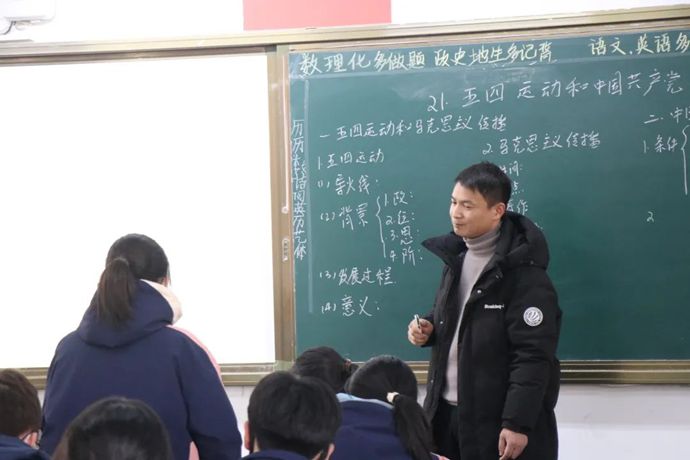 数理化多做题 政史地生多记背 语文.英语多
21.五四运动和中国共产党
一.五四运动和马克思主义传播
1.五四运动
(1)导火线:
(2)背景
1.政:
2.
3.思:
4.阶:
(3)发展过程
(4)意义:
2.马克思主义传播
间:
点
作:
二.中
1.条件
2